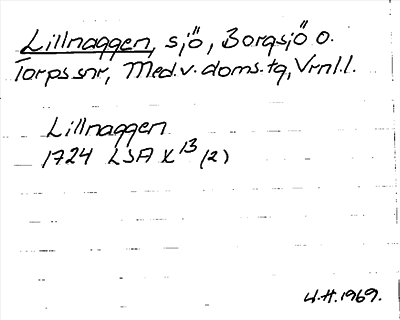 Lillnaggen, sjö, Borgsjö o.
Torps snr, Med.v.doms.tg, Vrnl.l.
Lillnaggen
1724 LSA X 13 (2)
U.H. 1969.